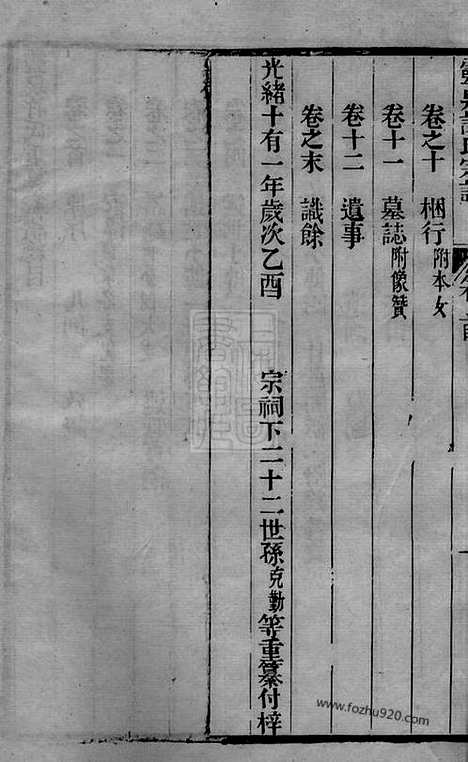 卷之十 梱行附本女
卷十一 墓誌附像贊
卷十二 遺事
卷之末 識餘
光緒十有一年歲次乙酉 宗祠下二十二世孫克勤等重纂付梓
www.fozhu920.com